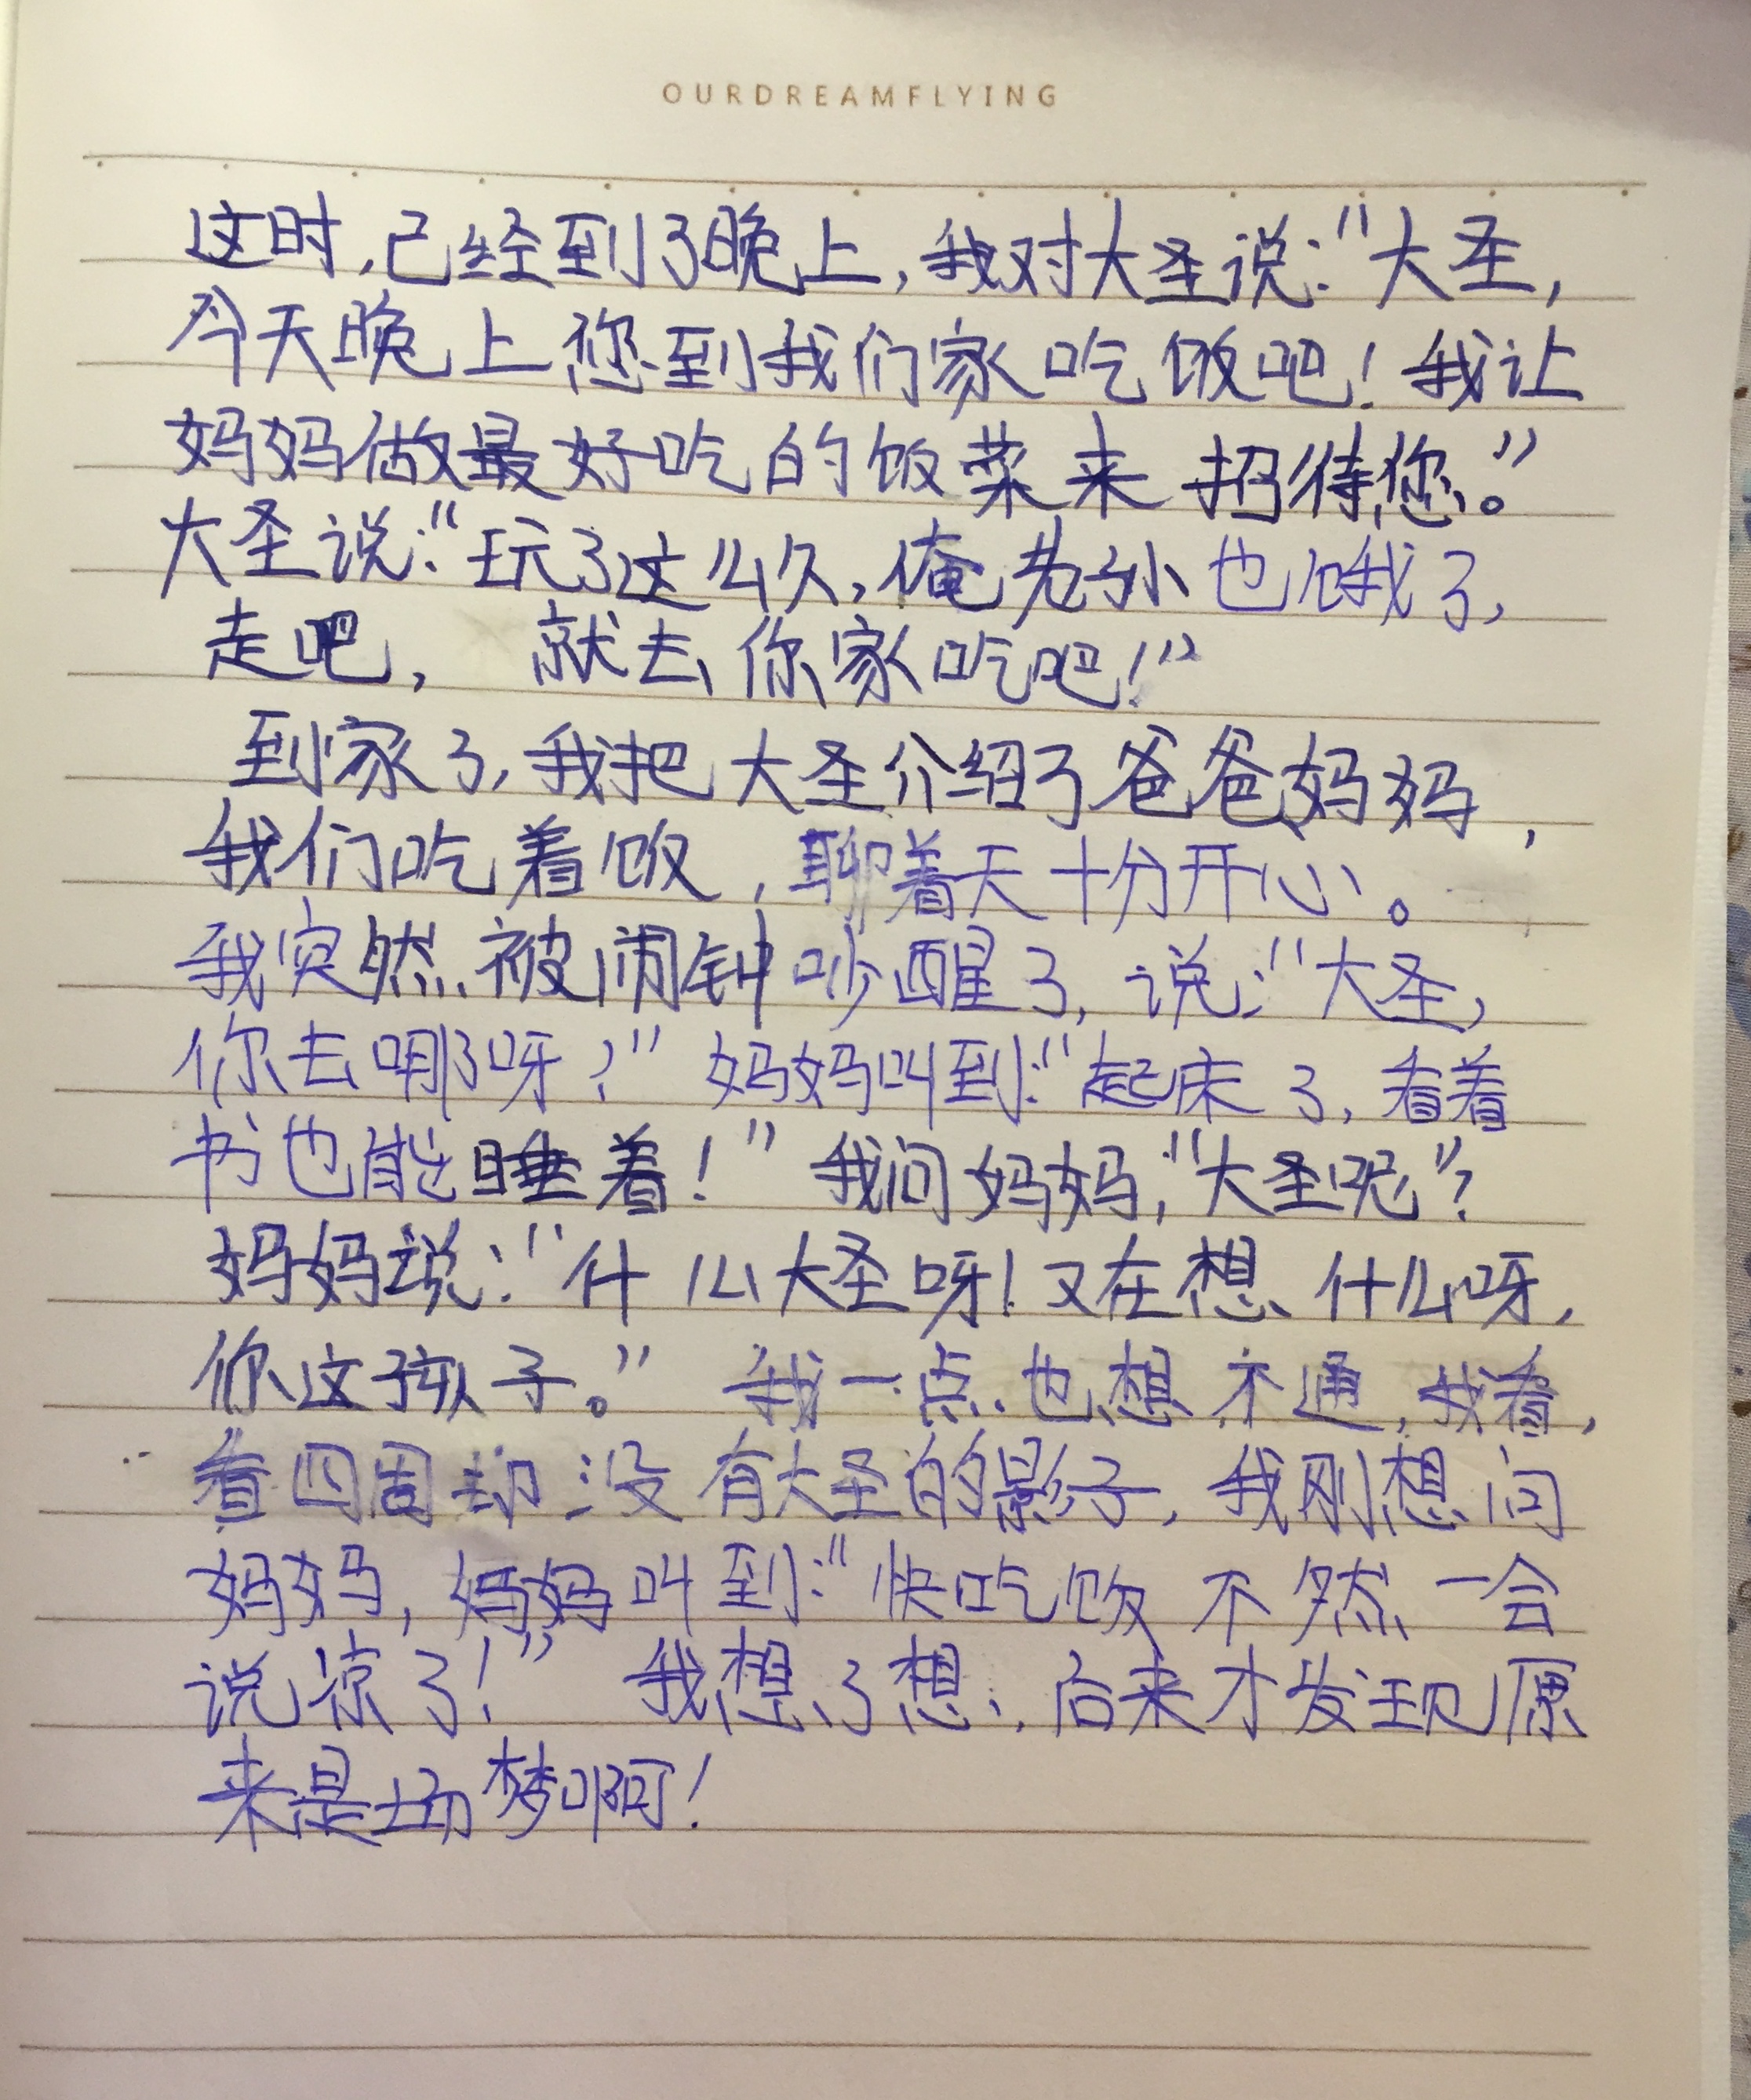 OURDREAMFLYING
这时,已经到了晚上,我对大圣说:"大圣,
今天晚上您到我们家吃饭吧!我让
妈妈做最好吃的饭菜来招待您。"
大圣说:"玩了这么久,俺老孙也饿了,
走吧, 就去你家吃吧!"
到家了,我把大圣介绍了爸爸妈妈,
我们吃着饭,聊着天十分开心。
我突然被闹钟吵醒了,说:"大圣,
你去哪呀?"妈妈叫到:"起床了,看着
书也能睡着!"我问妈妈,"大圣呢"?
妈妈说:"什么大圣呀!又在想什么呀,
你这孩子。"我一点也想不通,我看,
看四周却没有大圣的影子,我刚想问
妈妈,妈妈叫到:"快吃饭不然一会
说凉了!"我想了想,后来才发现原
来是场梦啊!